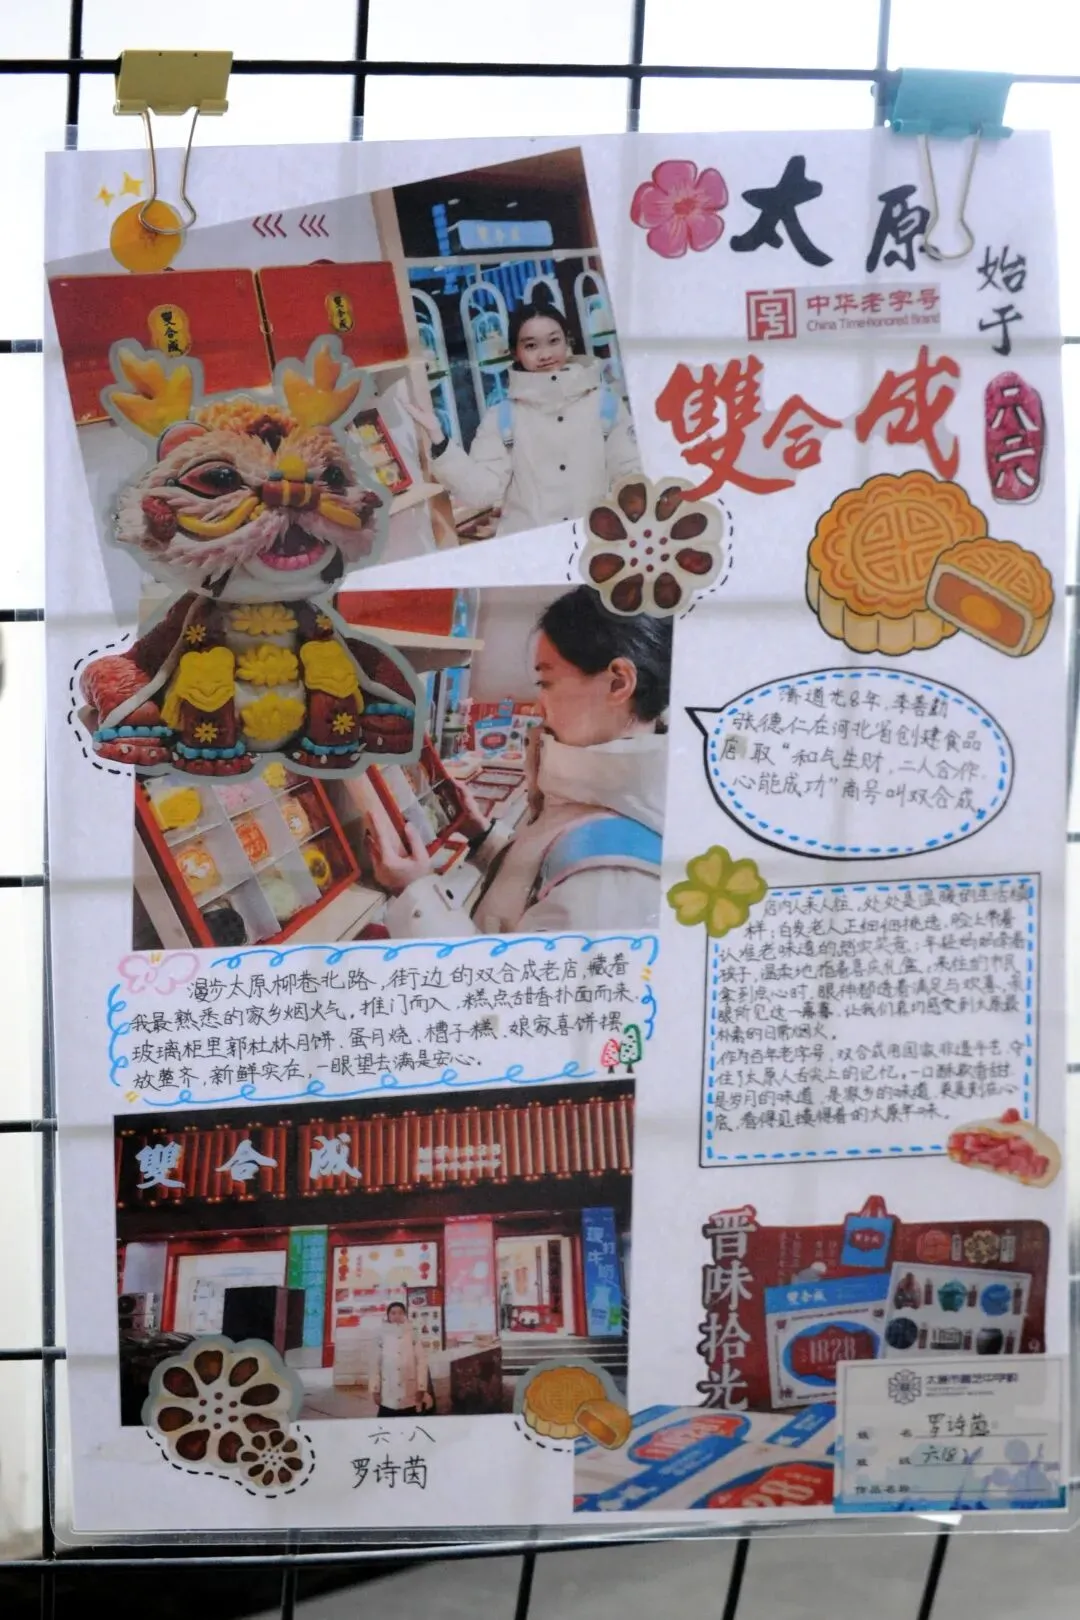 太原
始于
中华老字号
China Time-honored Brand
雙合成
一八二八
雙合成
雙合成
雙合成
清道光8年,李善勤
张德仁在河北省创建食品
店取“和气生财,二人合作,
心能成功”商号叫双合成
店内人来人往,处处是温暖的生活模
样:白发老人正细细挑选,脸上带着
认准老味道的踏实笑意;年轻妈妈牵着
孩子,温柔地指着喜庆礼盒;来往的市民
拿到点心时,眼神都透着满足与欢喜,
眼前见这一幕幕,让我们真切感受到太原最
朴素的日常烟火。
作为百年老字号,双合成用国家非遗手艺,守
住了太原人舌尖上的记忆。一口酥软香甜,
是岁月的味道,是家乡的味道,更是刻在心
底、看得见摸得着的太原年味。
漫步太原柳巷北路,街边的双合成老店,藏着
我最熟悉的家乡烟火气,推门而入,糕点甜香扑面而来,
玻璃柜里郭杜林月饼、蛋月烧、槽子糕、娘家喜饼摆
放整齐,新鲜实在,一眼望去满是安心。
雙合成
晋味拾光
雙合成
雙合成
1828
六·八
罗诗茵
姓 名 罗诗茵
班 级 六(8)
作品名称